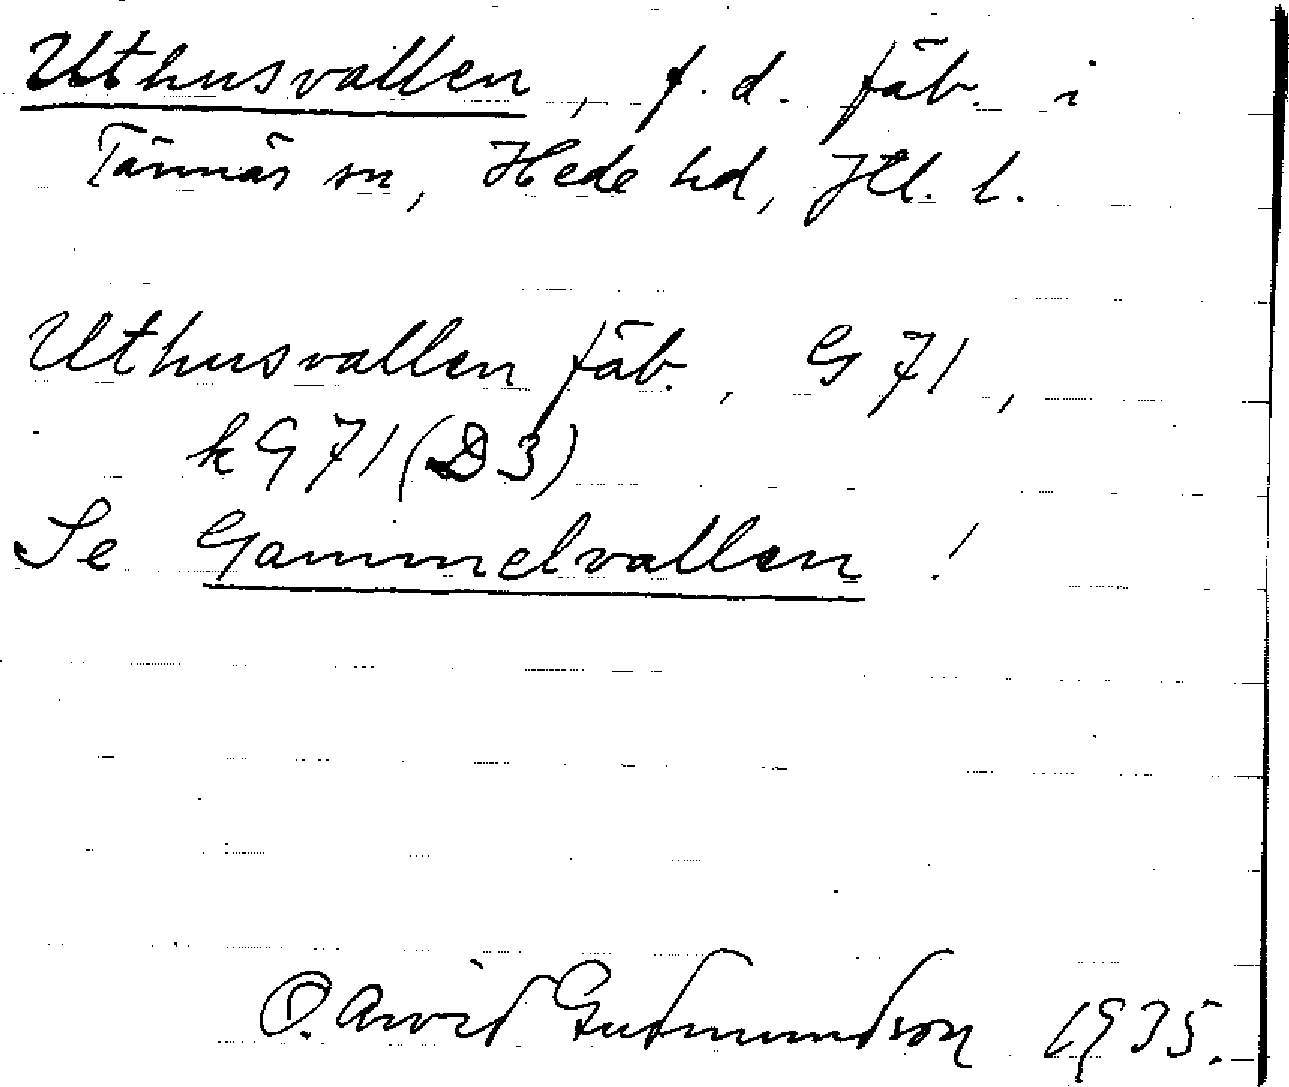 Uthusvallen, f. d. fäb. i
Tännäs sn, Hede hd, Jtl. l.
Uthusvallen fäb., G 71,
k G 71 (D 3)
Se Gammelvallen!
O. Arvid Gudmundson 1935.